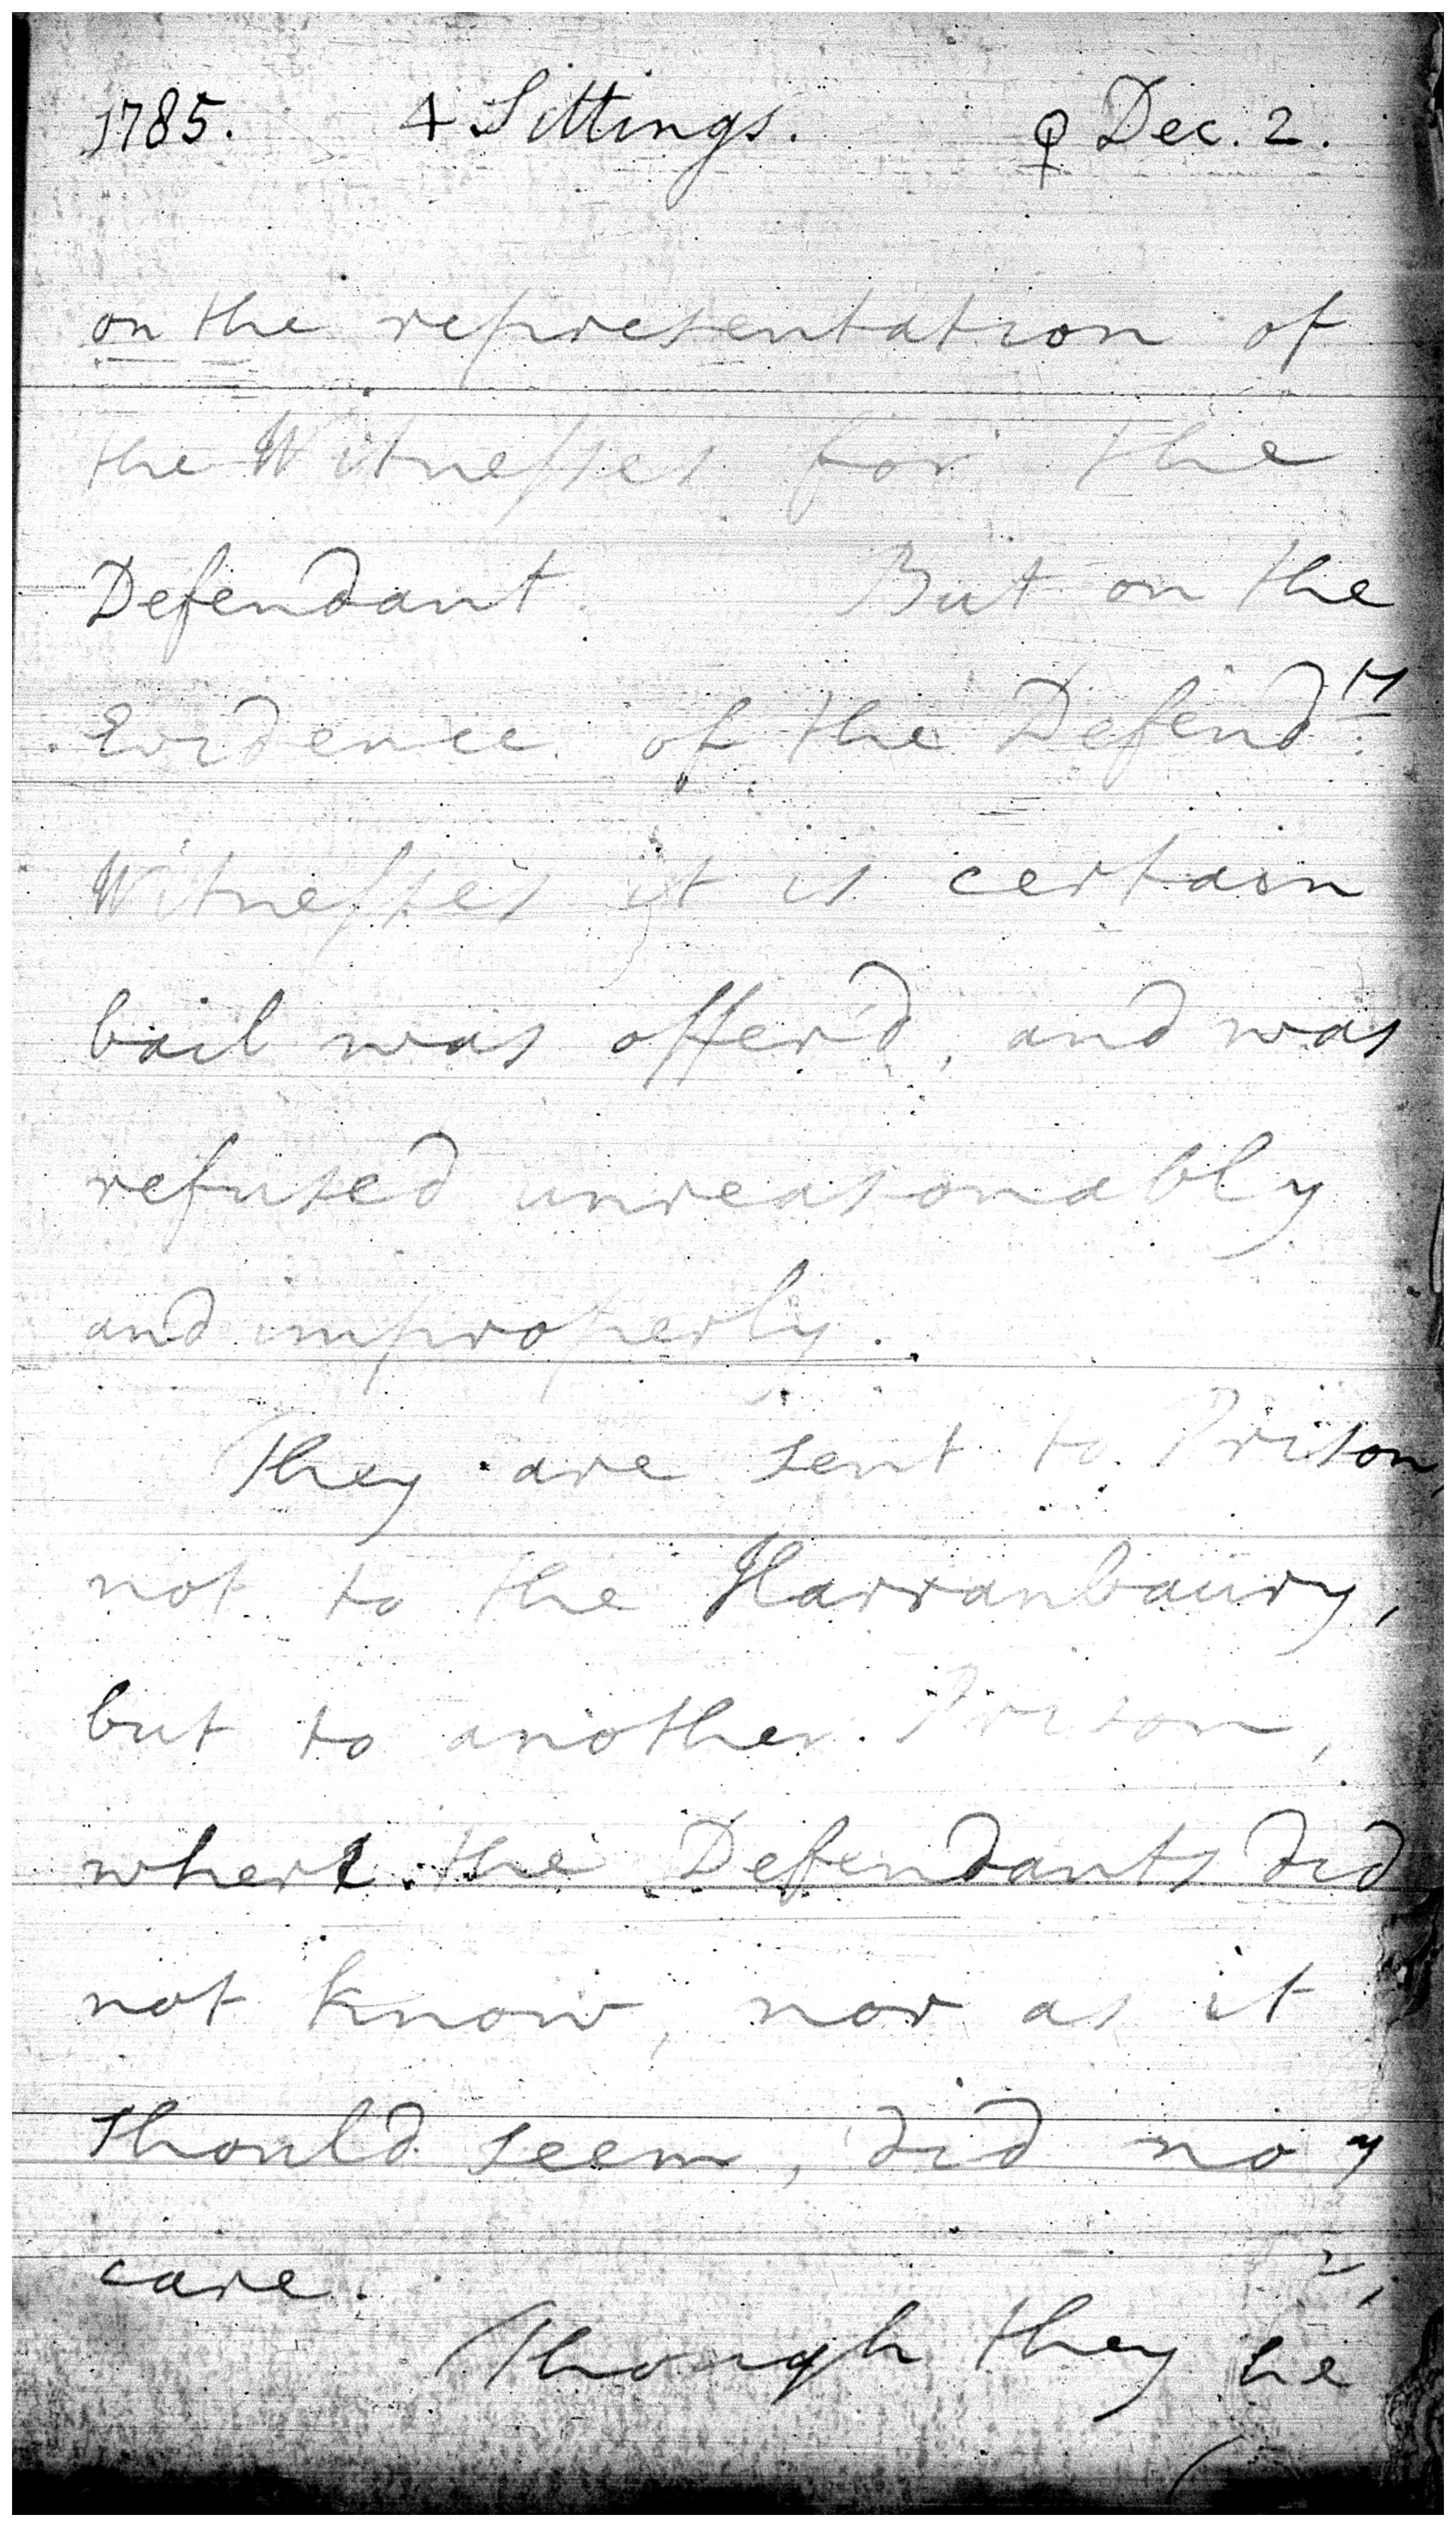 1785. 4 Sittings. ♀ Dec. 2.
on the representation of
the Witnesses for the
Defendant. But on the
Evidence of the Defend.ts
Witnesses it is certain
bail was offer'd, and was
refused unreasonably
and improperly.
They are sent to Prison,
not to the Harranbaury,
but to another Prison,
where the Defendants did
not know, nor as it
should seem, did not
care.
Though they he